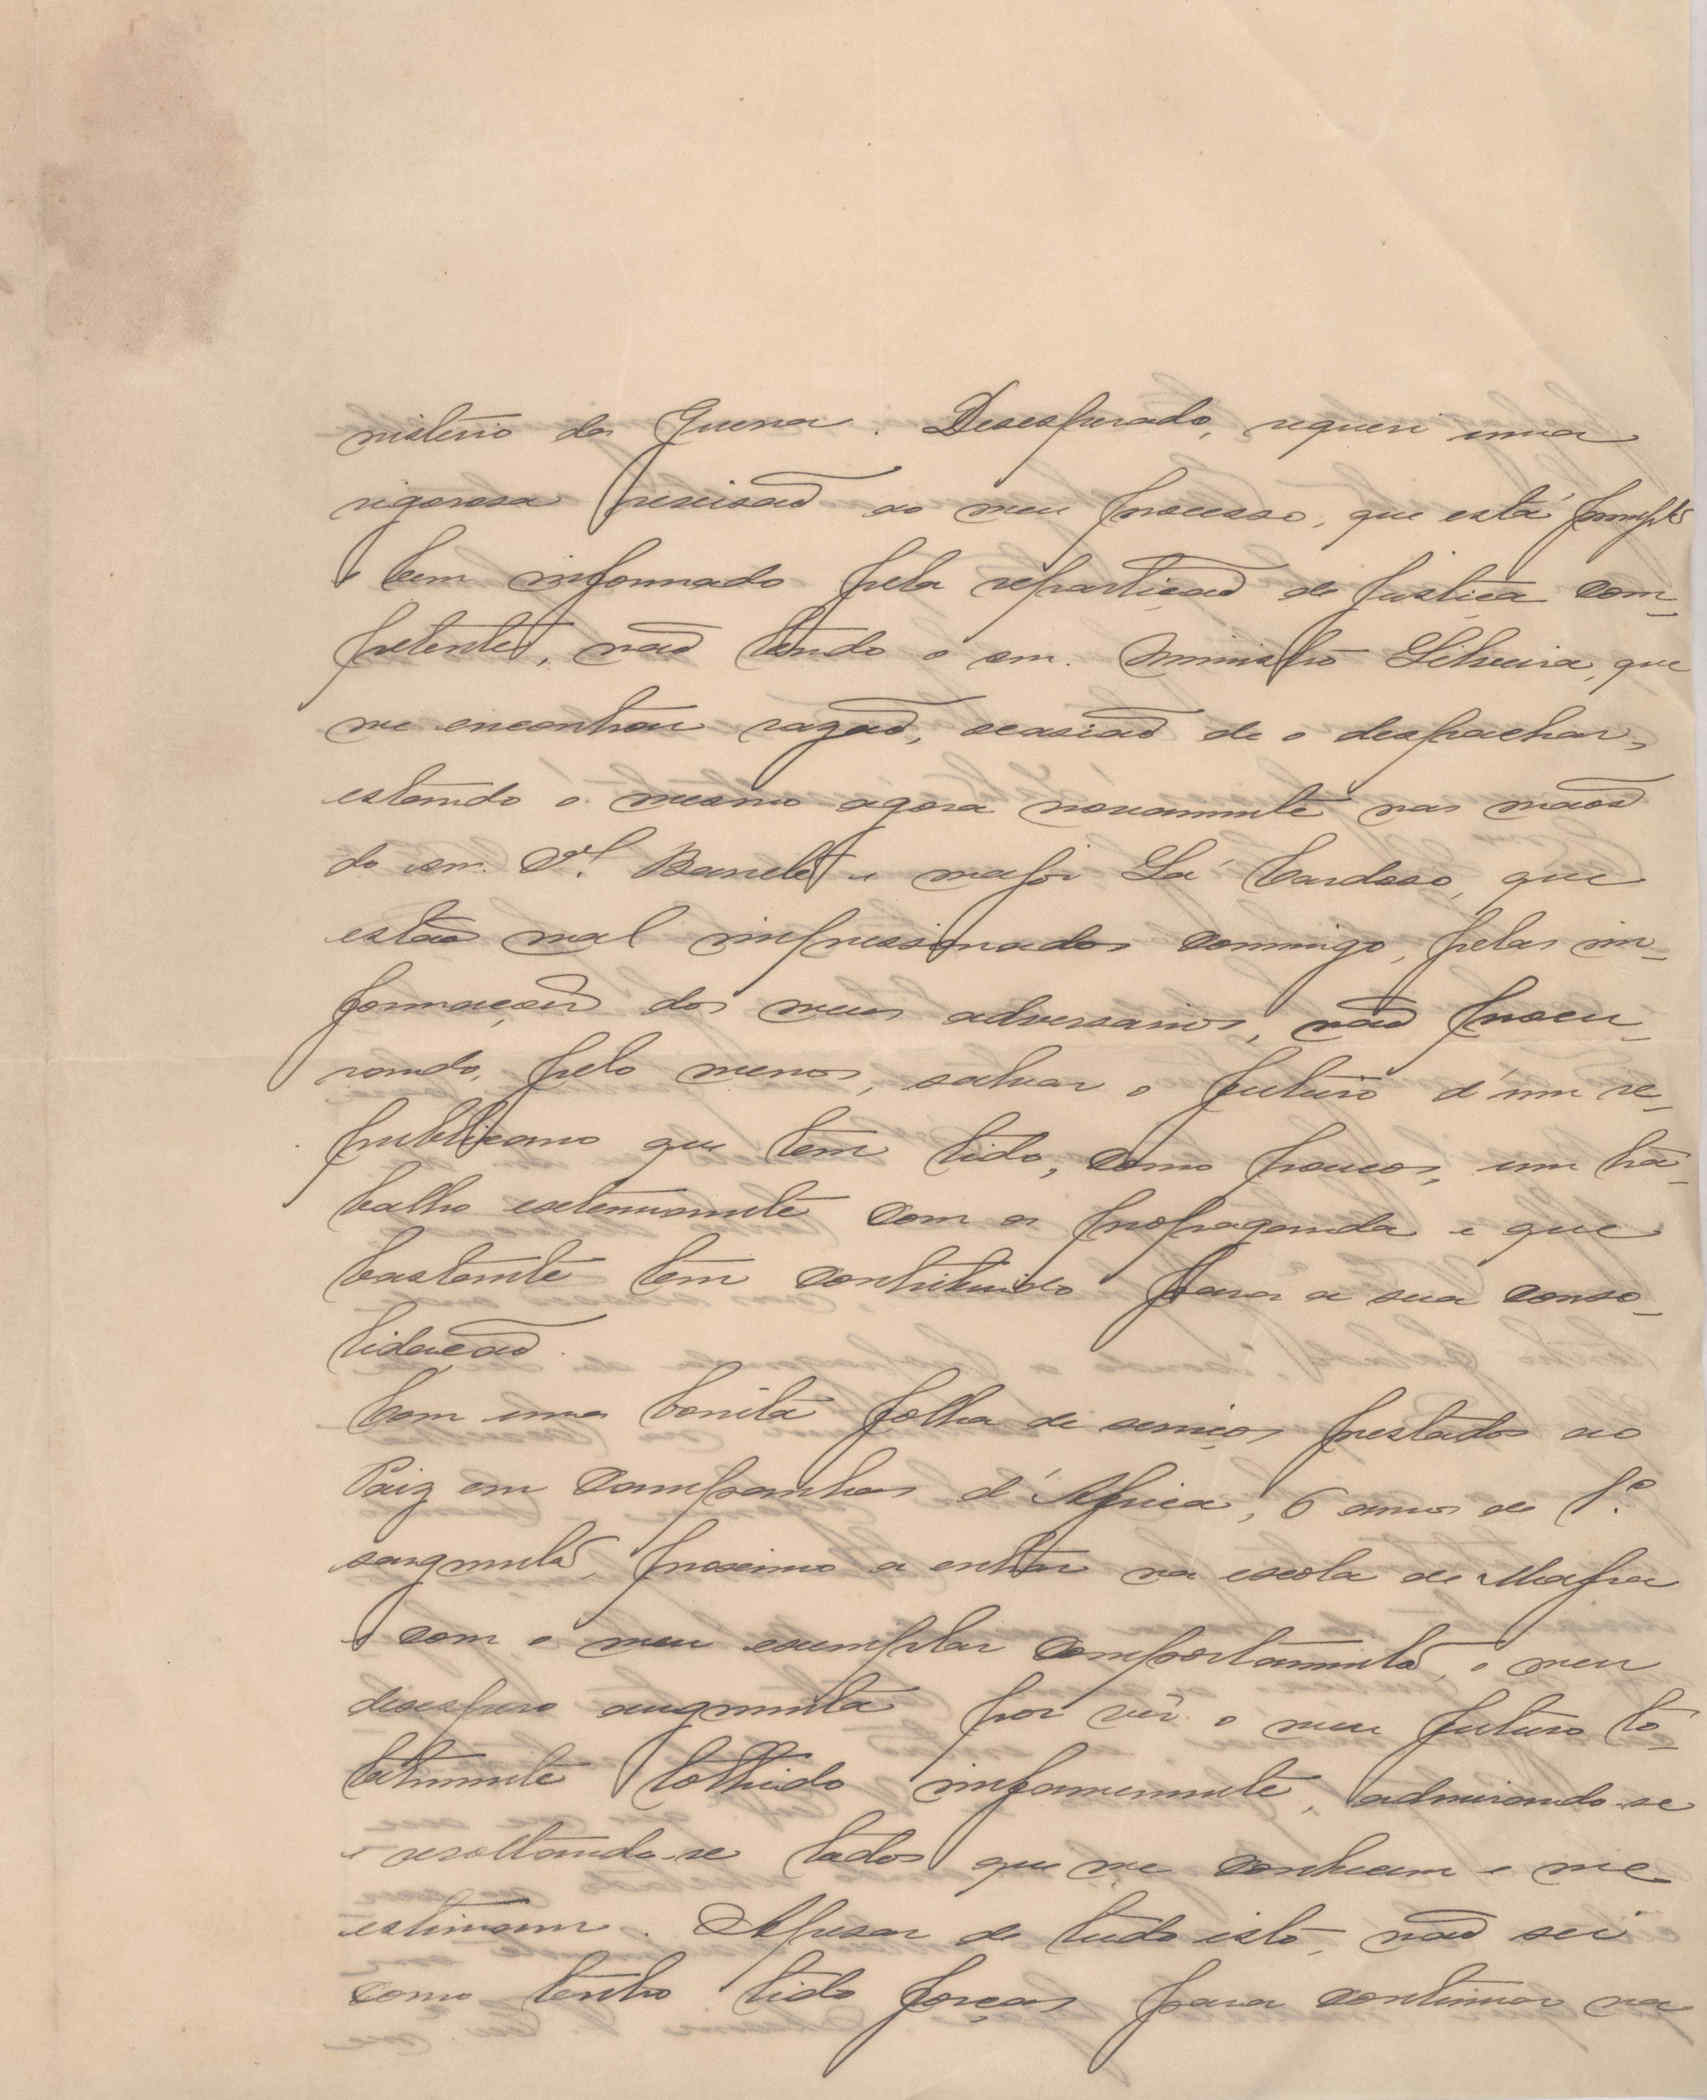 nisterio da Guerra. Desesperado, requeri uma
rigorosa revisaõ ao meu processo, que está prompto
e bem informado pela repartiçaõ de justiça com-
petente, naõ tendo o sm. ministro Silveira, que
me encontrou razaõ, ocasiaõ de o despachar,
estando o mesmo agora novamente nas maõs
do sm. Barreto e major Sá Cardoso, que
estaõ mal impressionados commigo, pelas in-
formações dos meus adversarios, naõ procu-
rando, pelo menos, salvar o futuro d'um re-
publicano que tem tido, como poucos, um tra-
balho extenuante com a propaganda e que
bastante tem contribuido para a sua conso-
lidaçaõ.
Com uma bonita folha de serviços prestados ao
Paiz em Campanhas d'Africa, 6 annos de 1.º
sargento, proximo a entrar na escola de Mafra
e com o meu exemplar comportamento, o meu
desespero augmenta por vêr o meu futuro to-
talmente tolhido infamemente, admirando-se
e revoltando-se todos que me conhecem e me
estimam. Apesar de tudo isto, naõ sei
como tenho tido forças para continuar na